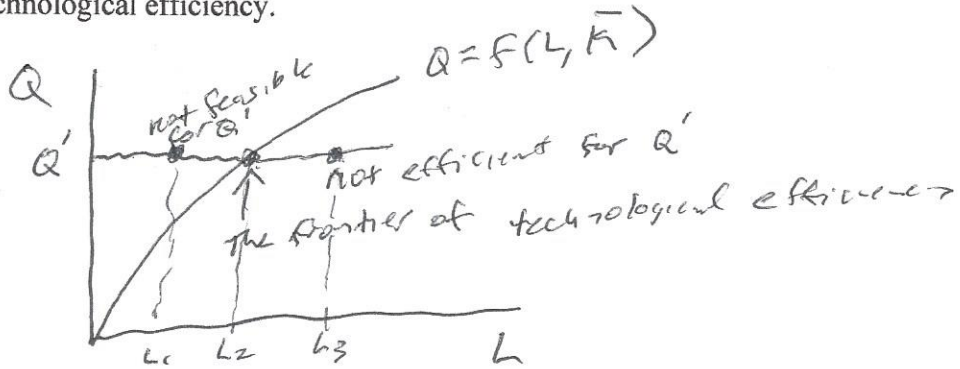 chnological efficiency.
Q
Q = f(L, K̄)
not feasible
for Q'
Q'
not efficient for Q'
the frontier of technological efficiency
L1 L2 L3 L